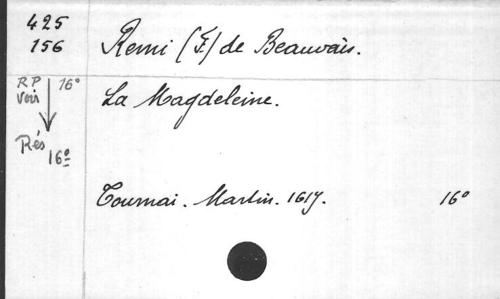 425
156
Remi (F.) de Beauvais.
RP 16°
voir
La Magdeleine.
Rés
16°
Tournai. Martin. 1617. 16°